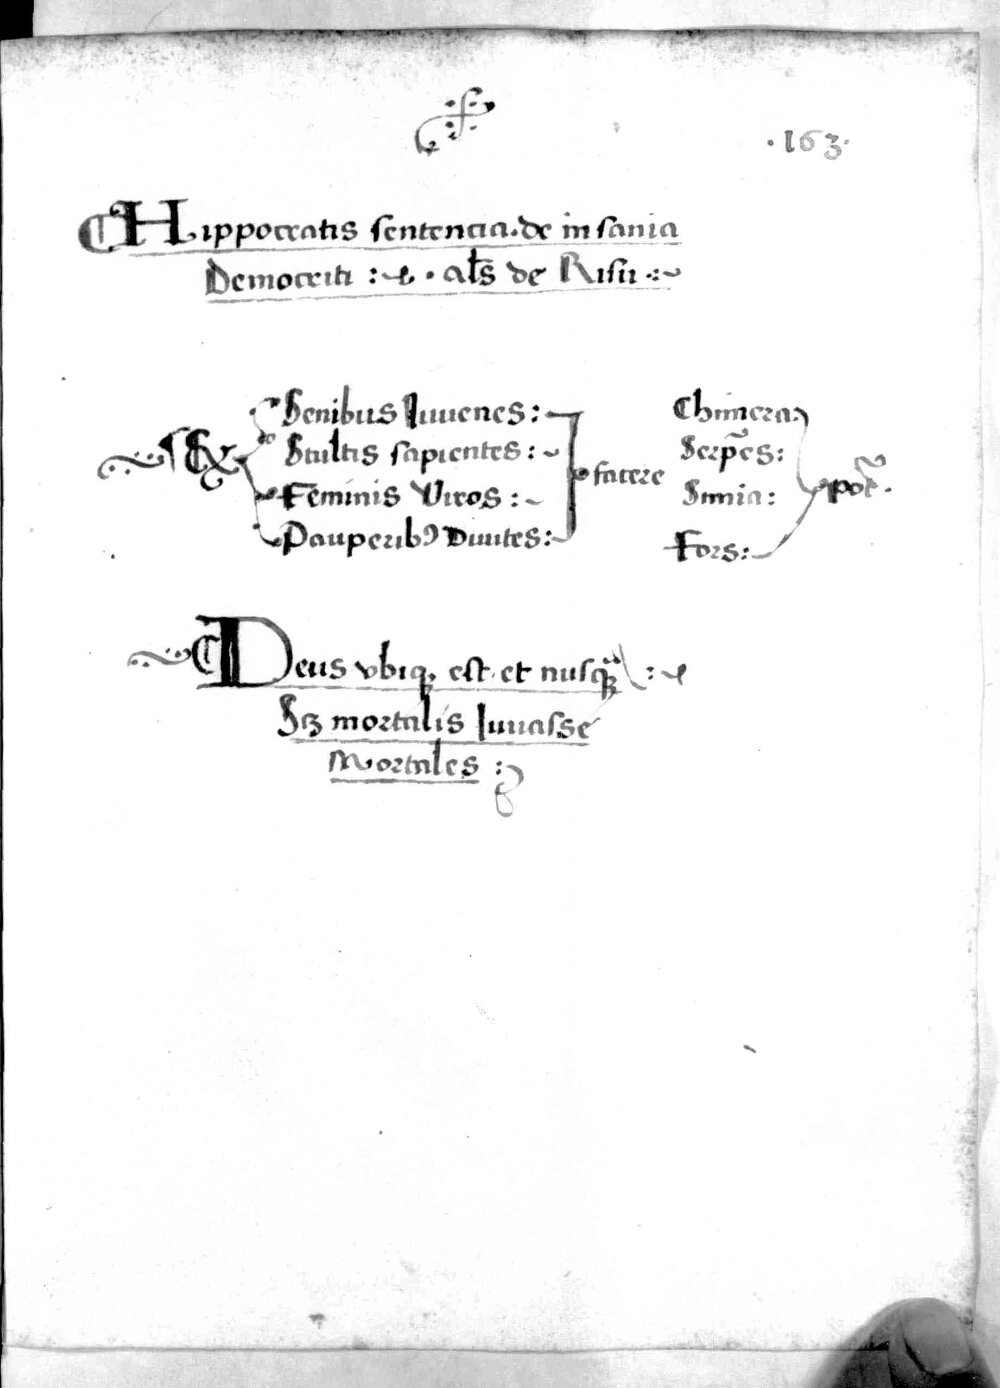 ·163·
Hippocratis sentencia. de insania
Democriti : · al̃s de Risu
Ex
Senibus Iuuenes :
Stultis sapientes :
Fẽminis Viros :
Pauperibꝰ Diuites :
facere
Chimera :
Serpẽs :
Simia :
Fors :
pot̃.
Deus vbiqꝫ est et nusqᷓꝫ :
Sꝫ mortalis Iuuasse
Mortales :